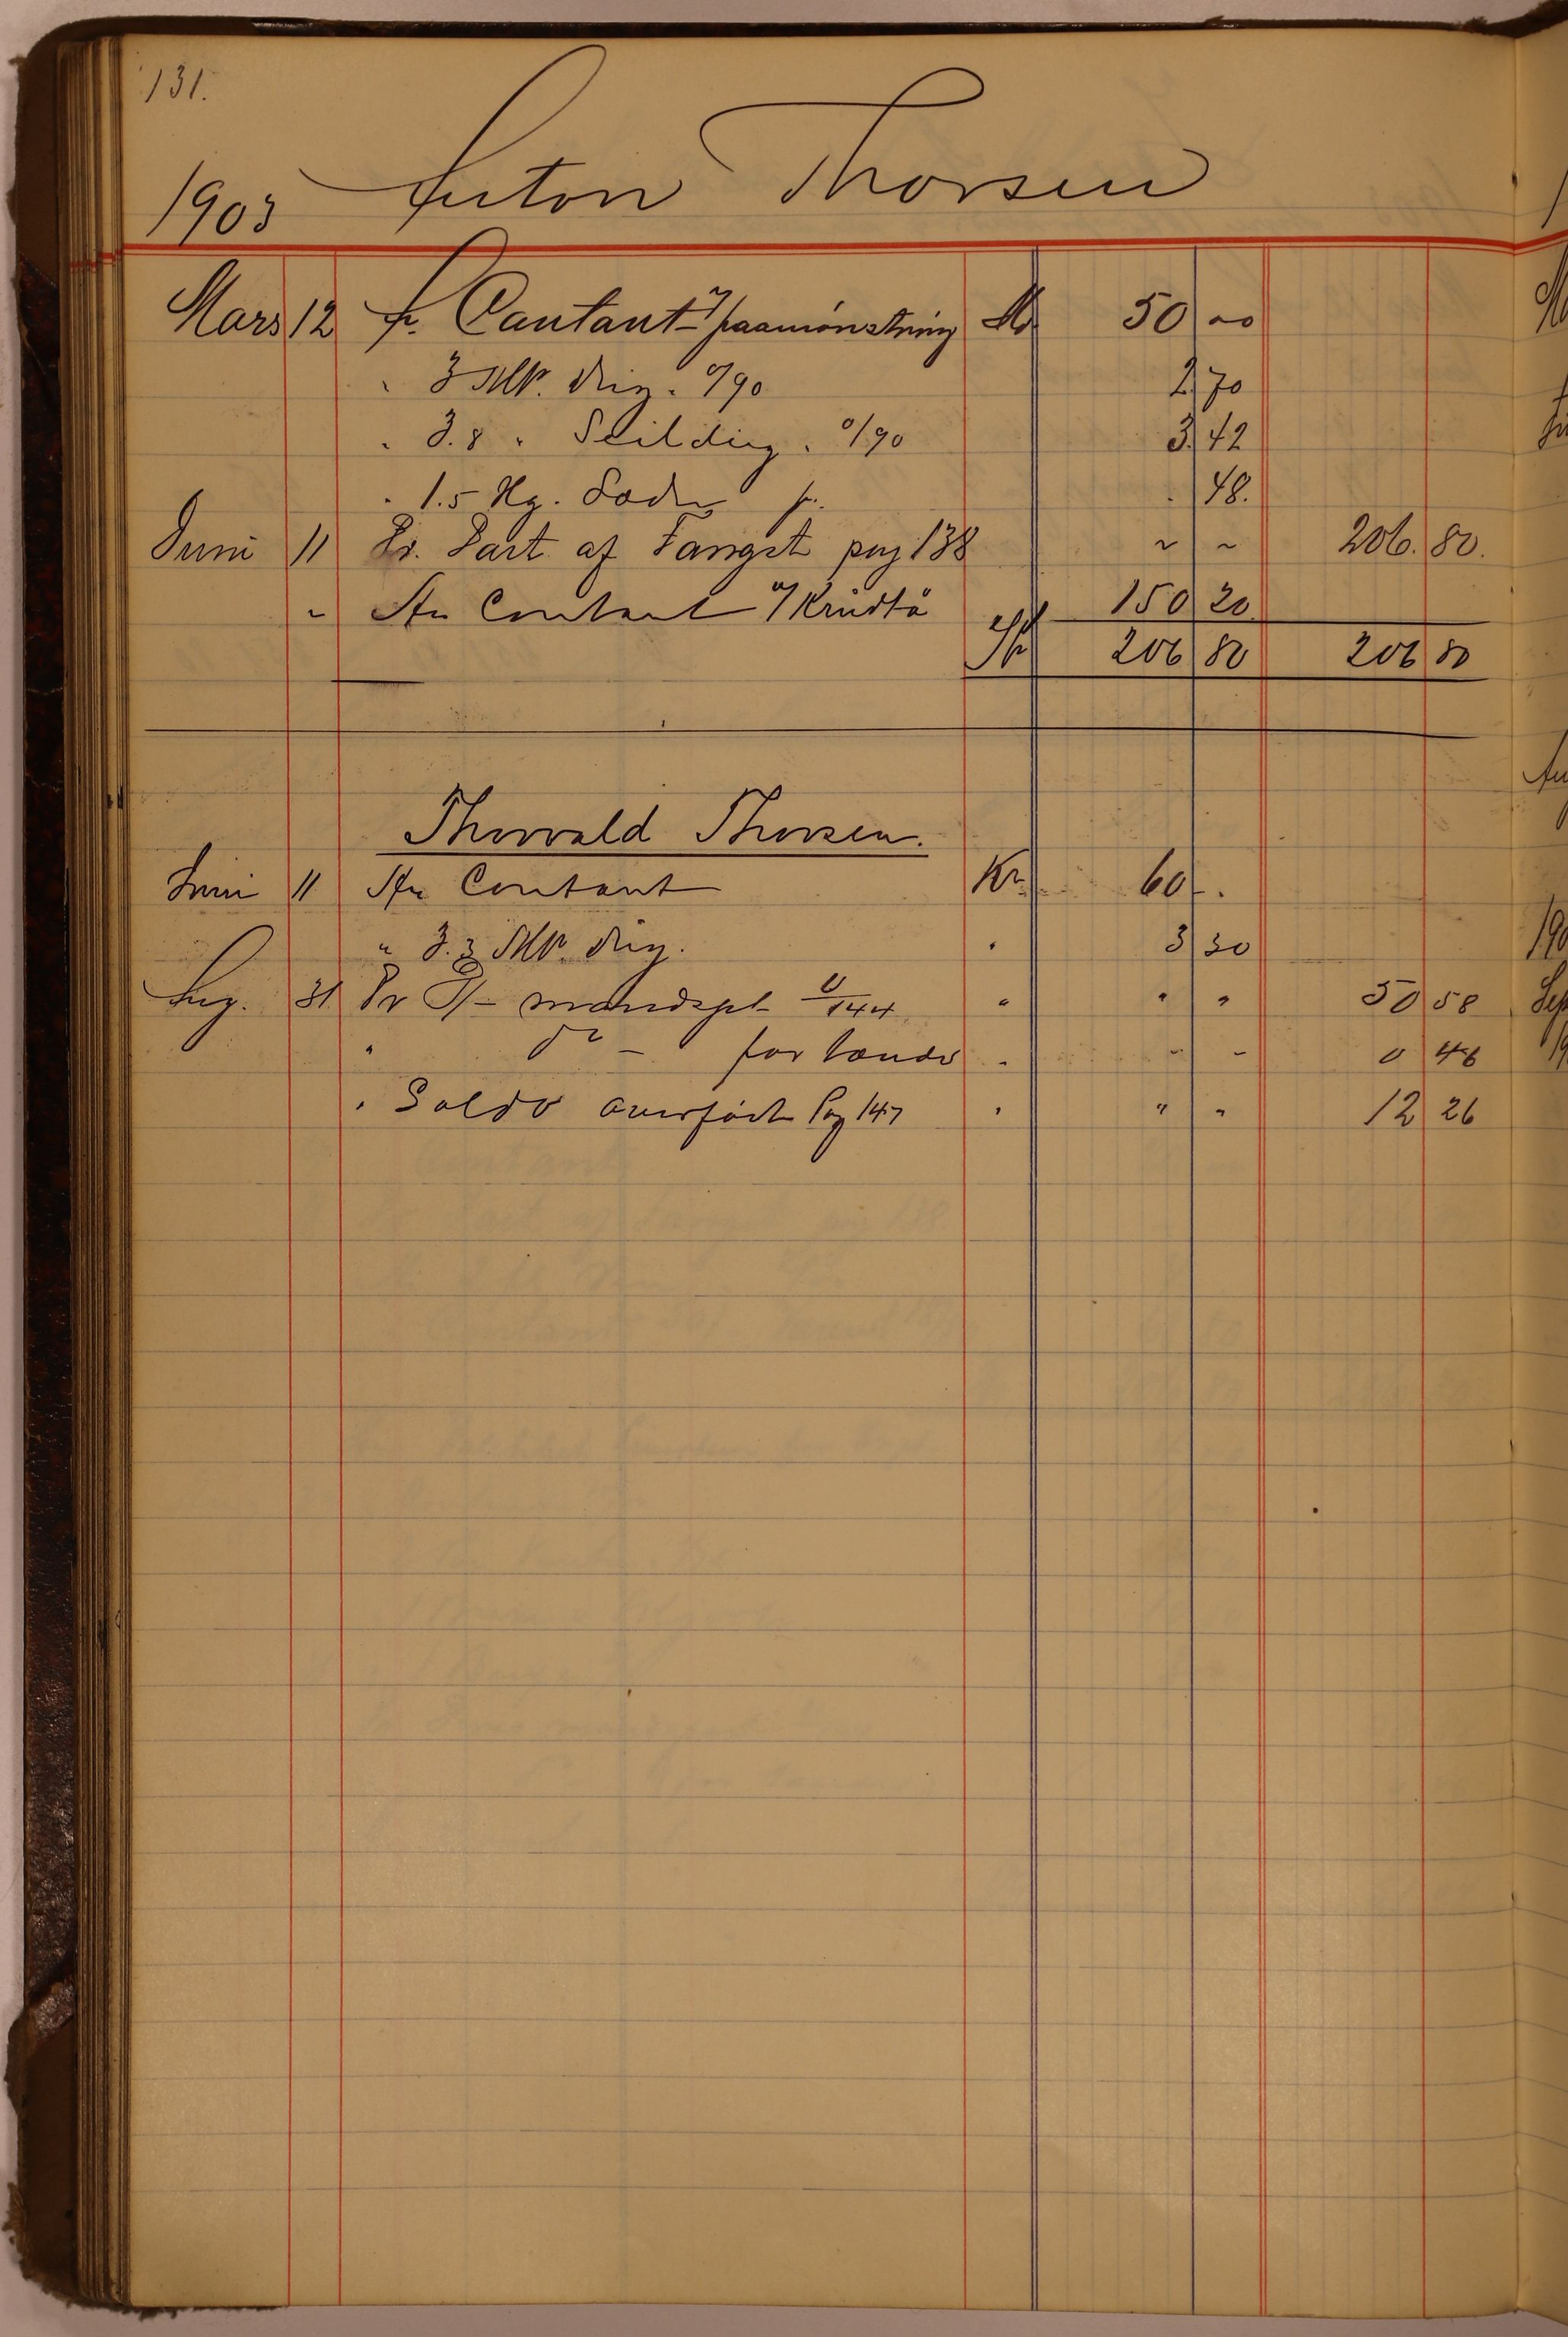 131.
1903 Anton Thorsen
Mars 12 An Contant v/ paamönstring Kr 50 00
" 3 Mtr. drin. a/90 2 70
" 3.8 " Seilding. a/90 3. 42
" 1.5 Kg. pr. " 48.
Juni 11 Pr. Part af Fangst pag 138 " " 206. 80.
" An Contant v/ Krudtö 150 20
Kr 206 80 206 80
Thorvald Thorsen.
Juni 11 An Contant Kr 60 - .
" 3.3 Mtr. drin. " 3 30
Aug. 31 Pr mandspt 144 " " " 50 58
" do - for " " " 0 46
" Saldo överfört Pag 147 " " " 12 26